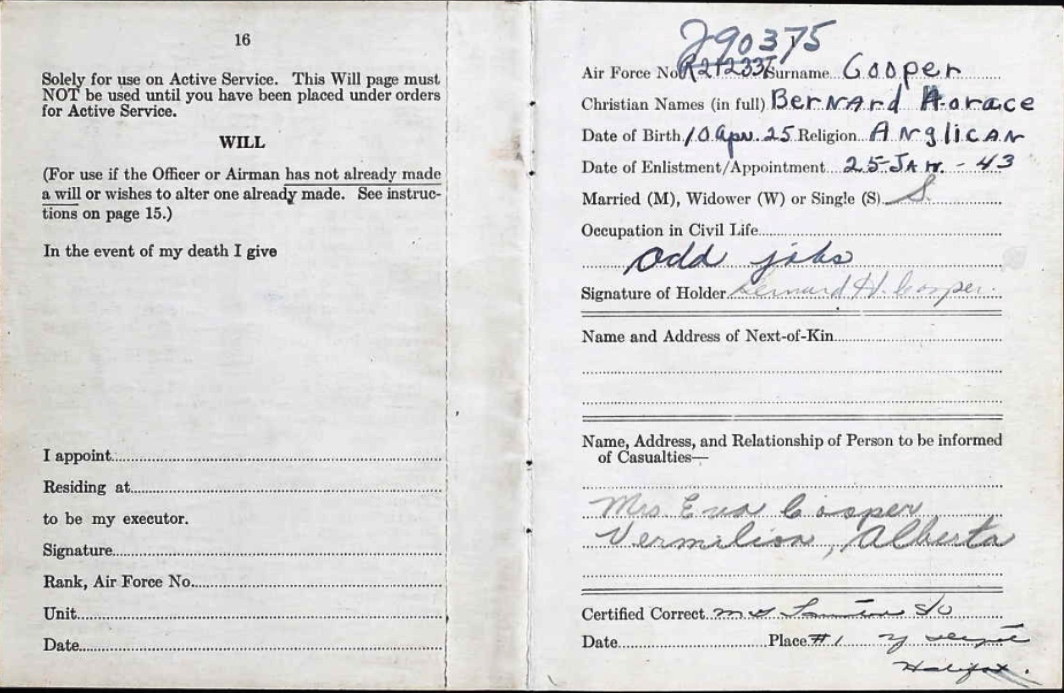 16
Solely for use on Active Service. This Will page must
NOT be used until you have been placed under orders
for Active Service.
WILL
(For use if the Officer or Airman has not already made
a will or wishes to alter one already made. See instruc-
tions on page 15.)
In the event of my death I give
I appoint
Residing at
to be my executor.
Signature
Rank, Air Force No.
Unit
Date
J90375
Air Force No. R212337 Surname Cooper
Christian Names (in full) Bernard Horace
Date of Birth 10 Apr. 25 Religion Anglican
Date of Enlistment/Appointment 25-JAN.-43
Married (M), Widower (W) or Single (S) S.
Occupation in Civil Life
Odd jobs
Signature of Holder Bernard H. Cooper.
Name and Address of Next-of-Kin
Name, Address, and Relationship of Person to be informed
of Casualties—
Mrs Eva Cooper
Vermilion, Alberta
Certified Correct
Date Place #1 Y
Halifax.